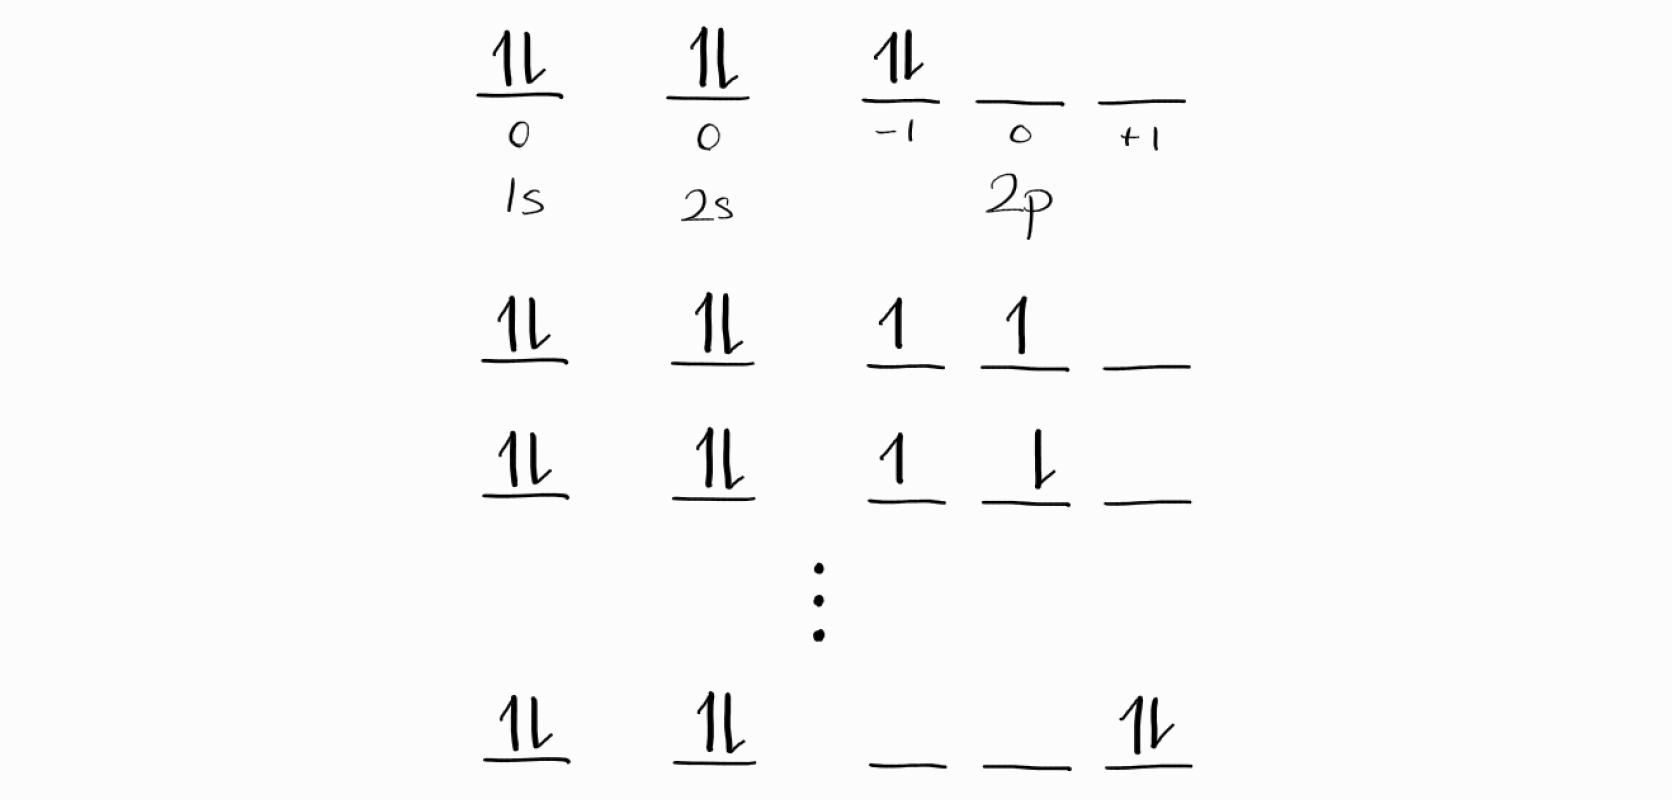 ⥮ ⥮ ⥮
0 0 -1 0 +1
1s 2s 2p
⥮ ⥮ ↿ ↿
⥮ ⥮ ↿ ⇂
⋮
⥮ ⥮ ⥮